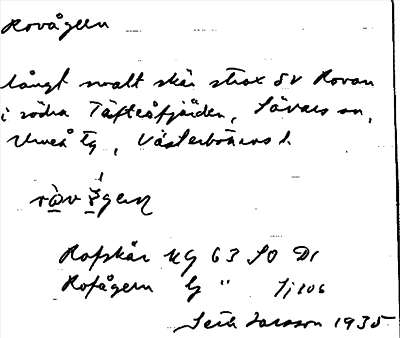 Rovågern
långt smalt skär strax SV Rovan
i södra Täfteåfjärden, Sävars sn,
Umeå tg, Västerbottens l.
Rofskär KG 63 SO D1
Rofågern G " Sj 106
Larsson 1935